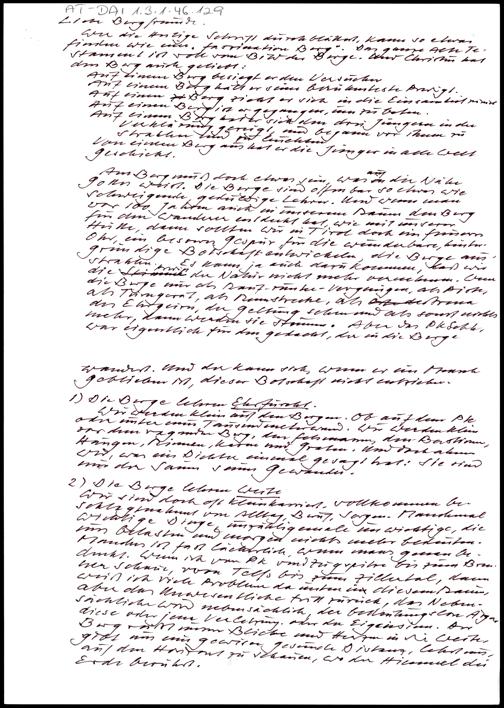 AT-DAI 1.3.1.46.129
Liebe Bergfreunde.
Wer die Heilige Schrift durchblättert, kann so etwas
finden wie eine "Faszination Berg". Das ganze Alte Te-
stament ist voll vom Bild der Berge. Und Christus hat
den Berg auch geliebt:
Auf einem Berg besiegt er den Versucher
Auf einem Berg hält er seine berühmteste Predigt.
Auf einen Berg zieht er sich in die Einsamkeit
Auf einen Berg ist er gegangen, um zu beten.
Auf einem Berg hat er sich den drei Jüngern in der
Verklärung gezeigt, und begann vor ihnen zu
strahlen und zu leuchten
Von einem Berg aus hat er die Jünger in alle Welt
geschickt.
Am Berg muß doch etwas sein, was auf die Nähe
Gottes weist. Die Berge sind offenbar so etwas wie
schweigende, geduldige Lehrer. Und wenn man
vor 100 Jahren auch in unserem Raum den Berg
für den Wanderer entdeckt hat, wie mit unserer
Hütte, dann sollten wir in Tirol doch ein feineres
Ohr, ein besseres Gespür für die wunderbare, hinter-
gründige Botschaft entwickeln, die Berge aus-
strahlen. Es kann ja auch dazu kommen, daß wir
die der Nähe nicht mehr vernehmen. Wenn
die Berge nur als Piste,
als Turngerät, als Rennstrecke, als Arena
des Ehrgeizes, der Geltung sehen und als sonst nichts
mehr, dann werden sie stumm. Aber das PKHaus
war eigentlich für den gedacht, der in die Berge
wandert. Und der kann sich, wenn er ein Mensch
geblieben ist, dieser Botschaft nicht entziehen.
1) Die Berge lehren Ehrfurcht.
Wir werden klein auf den Bergen. Ob auf dem PK
oder unter einem Tausendmeterwand. Wir werden klein
vor dem ragenden Berg, den Felsmauern, den Bastionen,
Hängen, Rinnen, Karen und Graten. Und doch ahnen
wir, was ein Dichter einmal gesagt hat: Sie sind
nur der Saum seines Gewandes.
2) Die Berge lehren Weite
Wir sind doch oft kleinkariert, vollkommen be-
schlagnahmt von Alltag, Beruf, Sorgen. Manchmal
wichtige Dinge, unzähligemale unwichtige, die
uns belasten und morgen nichts mehr bedeuten.
Manches ist fast lächerlich, wenn man's genau be-
denkt. Wenn ich vom PK von Zugspitze bis zum Bren-
ner schaue, vom Telfs bis zum Zillertal, dann
weiß ich viele Probleme da unten in diesem Raum,
aber das Unwesentliche tritt zurück, das Neben-
sächliche wird nebensächlich, der bedeutungslose Ärger
diese oder jene Verletzung oder der Eigensinn. Der
Berg reißt unsere Blicke und Herzen in die Weite,
gibt uns eine gewisse gesunde Distanz, lehrt uns,
auf den Horizont zu schauen, wo der Himmel die
Erde berührt.